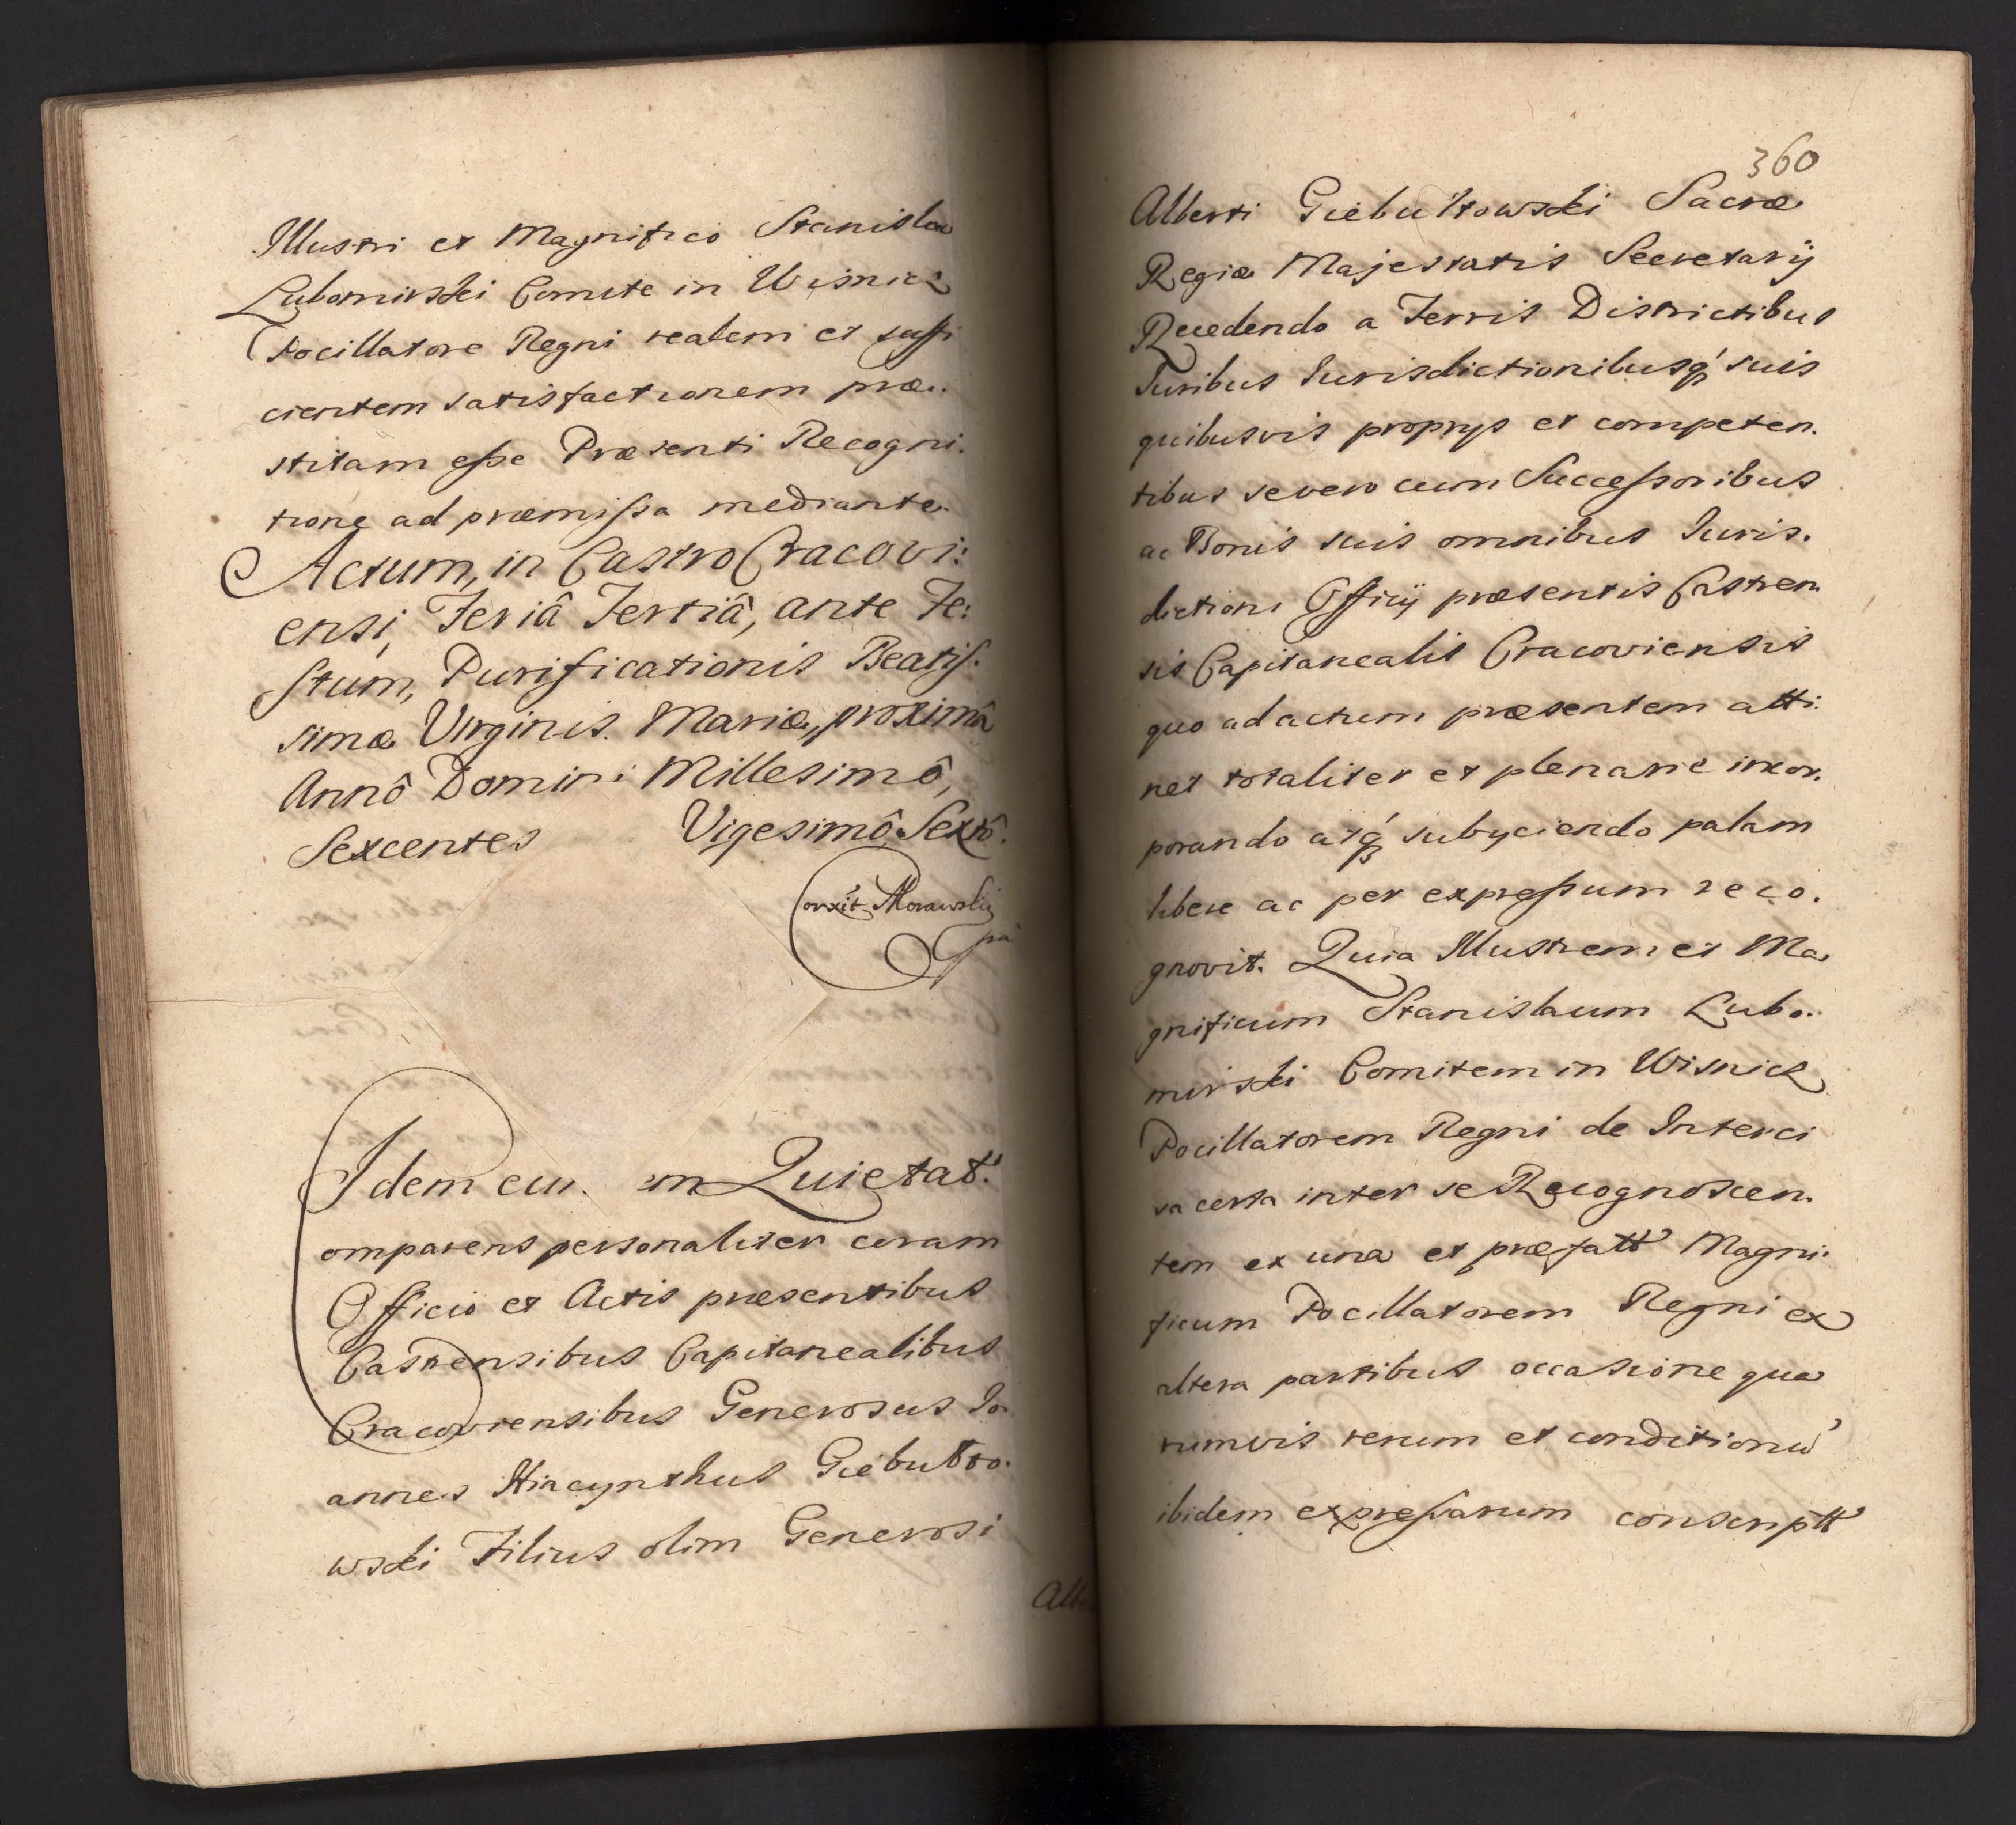 Illustri et Magnifico Stanislao
Lubomirski Comite in Wisnicz
Pocillatore Regni realem et suffi
cientem satisfactionem præ..
stitam esse Præsenti Recogni.
tione ad præmissa mediante.
Actum, in Castro Cracovi:
ensi, Feriâ Tertiâ, ante Fe:
stum, Purificationis Beatis.
simæ Virginis Mariæ, proximâ
Annô Domini Millesimô,
Sexcentes Vigesimô Sextô.
Corrxit Morawski
pa
Idem eun em Quietat.
Comparens personaliter coram
Officio et Actis præsentibus
Castrensibus Capitanealibus
Cracoviensibus Generosus Jo
annes Hiacynthus Giebulto.
wski Filius olim Generosi
Albe
360
Alberti Giebultowski Sacræ
Regiæ Majestatis Secretarij
Recedendo a Terris Districtibus
Juribus Jurisdictionibusq́ suis
quibusvis proprys et competen.
tibus se vero cum Successoribus
ac Bonis suis omnibus Juris.
dictioni Officij præsentis Castren
sis Capitanealis Cracoviensis
quo ad actum præsentem atti.
net totaliter et plenarie incor.
porando atq́ subyciendo palam
libere ac per expressum reco.
gnovit. Quia Illustrem et Ma
gnificum Stanislaum Lubo..
mirski Comitem in Wisnicz
Pocillatorem Regni de Interci
sa certa inter se Recognoscen.
tem ex una et præfatt Magni.
ficum Pocillatorem Regni ex
altera partibus occasione qua
rumvis rerum et conditionū
ibidem expressarum conscriptt